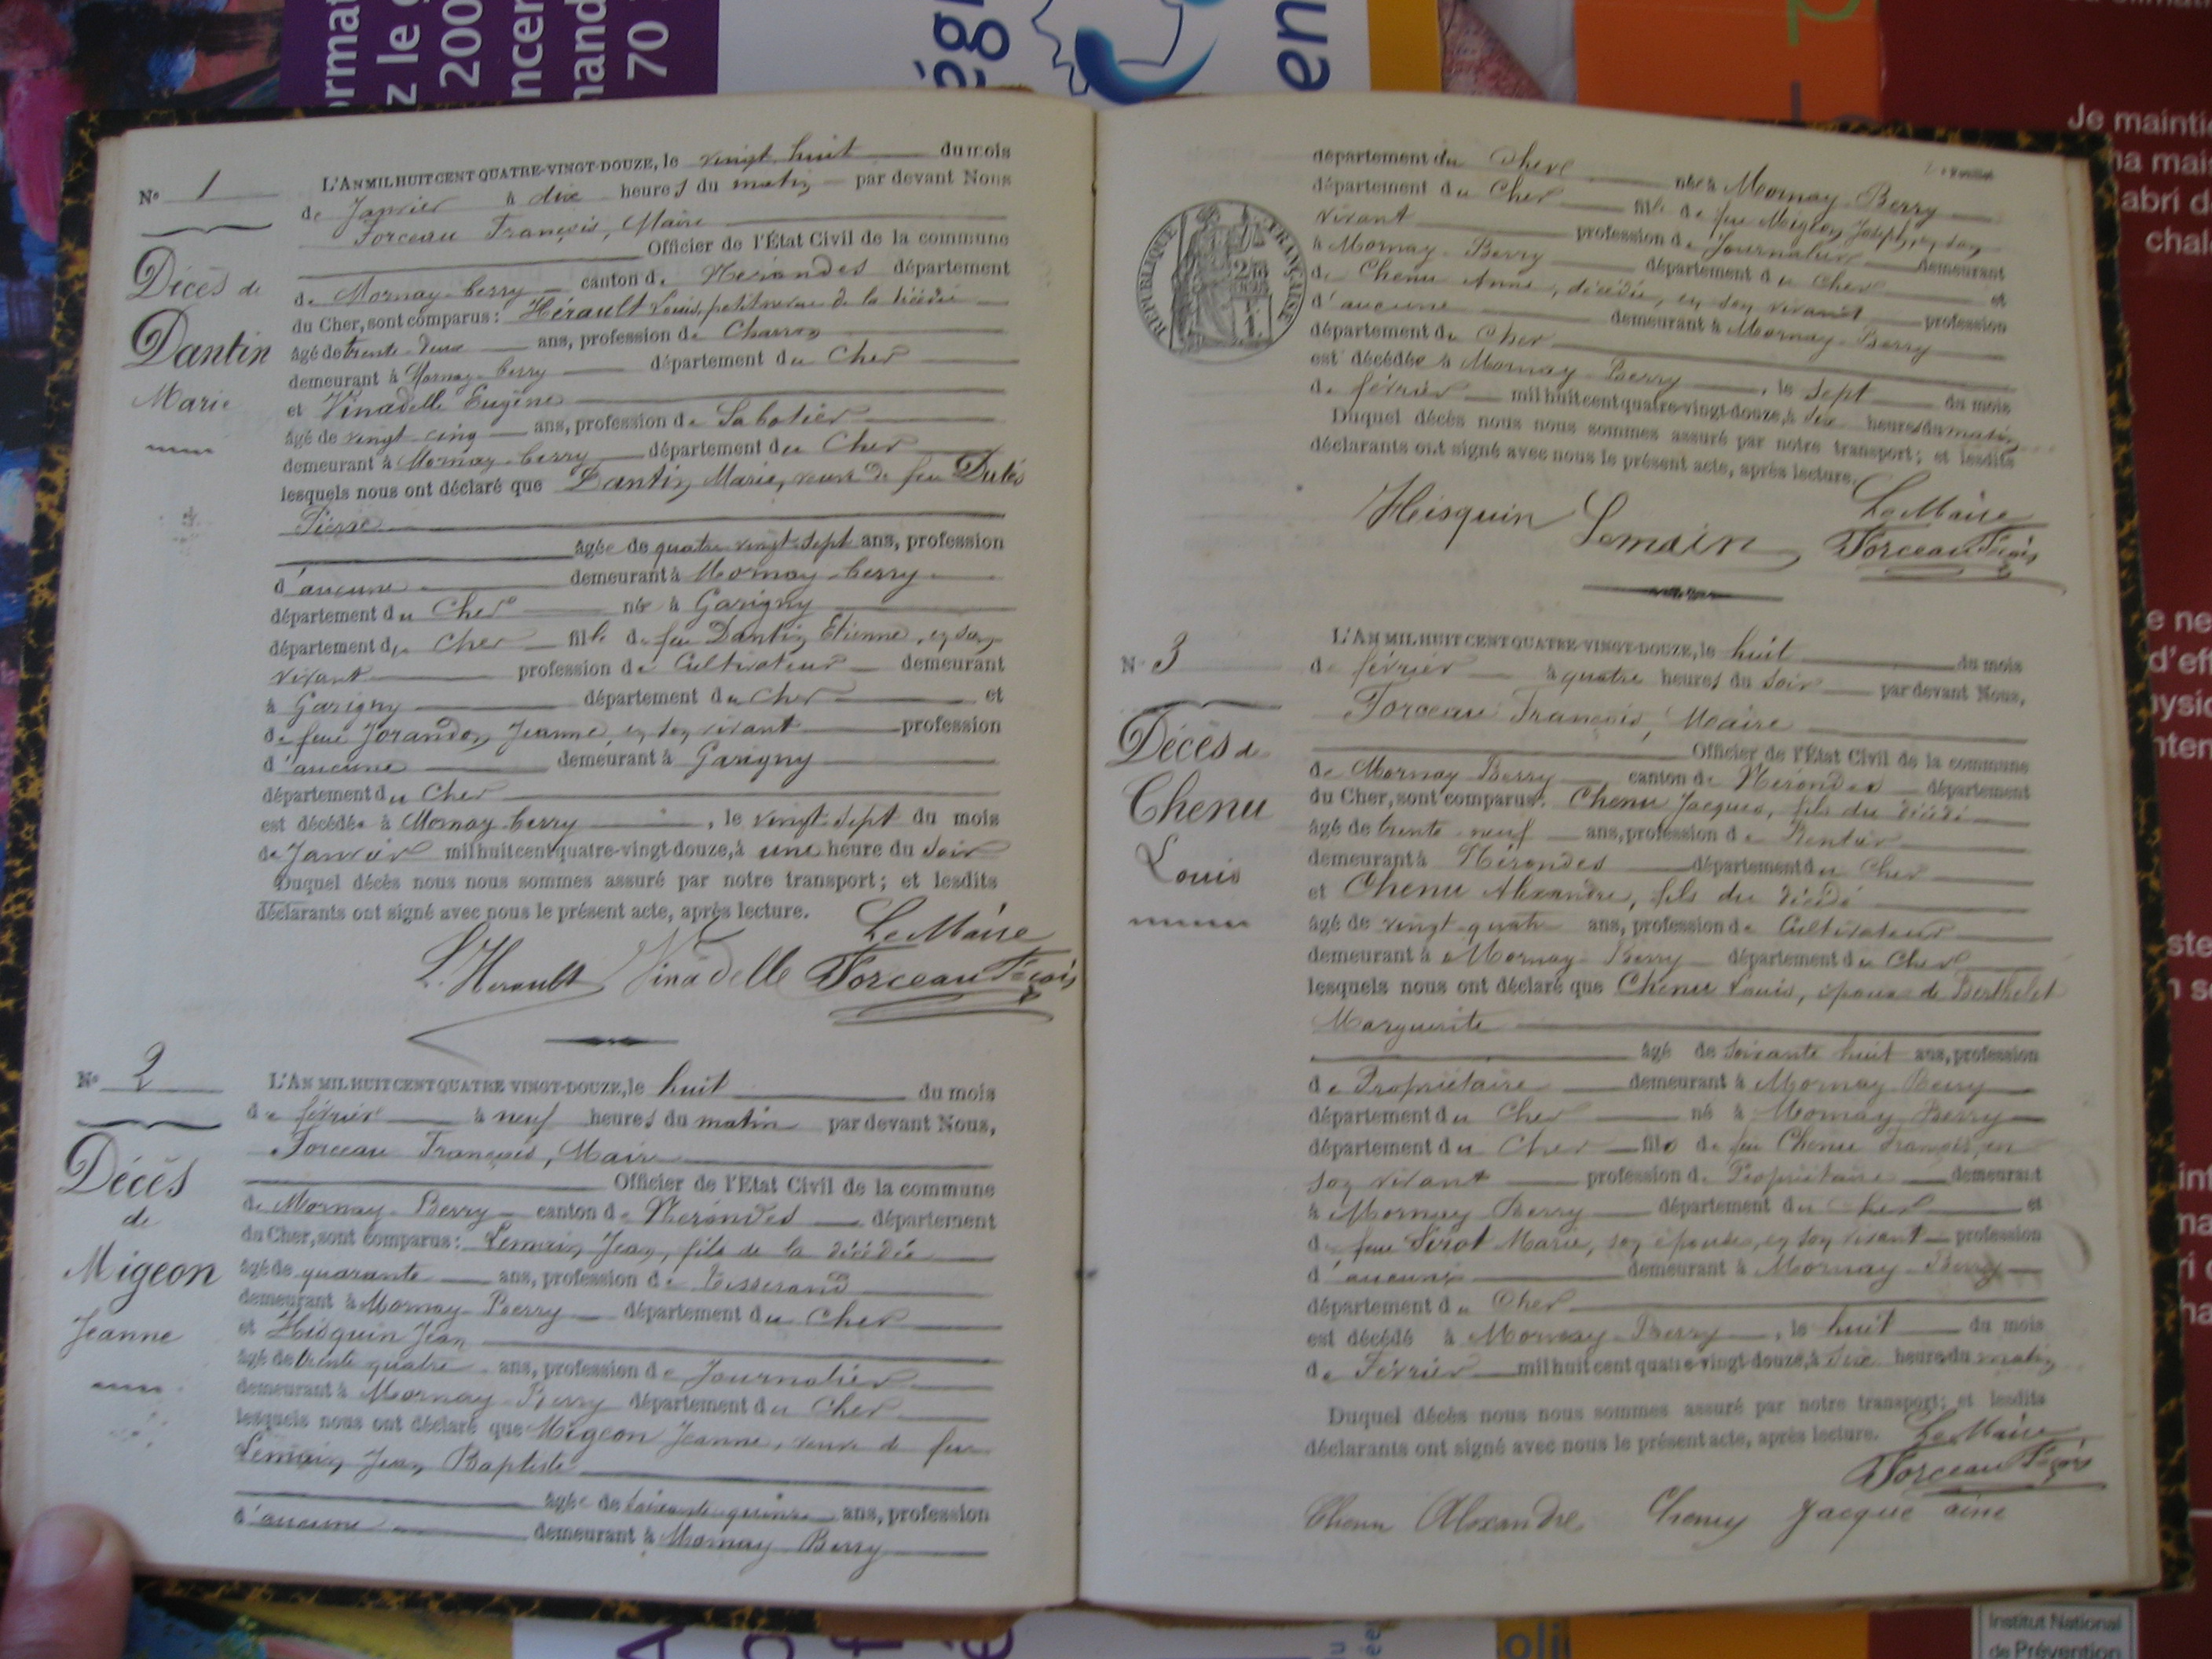 N° 1
Décès de
Dantin
Marie
L'AN MIL HUIT CENT QUATRE-VINGT-DOUZE, le vingt huit du mois
de Janvier à dix heures du matin par devant Nous
Forceau François, Maire
Officier de l'État Civil de la commune
de Mornay-berry canton de Nérondes département
du Cher, sont comparus: Hérault Louis, petit neveu de la décédée
âgé de trente-deux ans, profession de Charron
demeurant à Mornay-berry département du Cher
et Vinadelle Eugène
âgé de vingt-cinq ans, profession de Sabotier
demeurant à Mornay-berry département du Cher
lesquels nous ont déclaré que Dantin Marie, veuve de feu
Pierre
âgée de quatre vingt-sept ans, profession
d'aucune demeurant à Mornay-berry
département du Cher née à Garigny
département du Cher fille de feu Dantin Etienne, en son
vivant profession de Cultivateur demeurant
à Garigny département du Cher et
de feue Jorandon Jeanne, en son vivant profession
d'aucune demeurant à Garigny
département du Cher
est décédée à Mornay-berry, le vingt-sept du mois
de Janvier mil huit cent quatre-vingt-douze, à une heure du soir
Duquel décès nous nous sommes assuré par notre transport; et lesdits
déclarants ont signé avec nous le présent acte, après lecture.
Le Maire
L. Herault Vinadelle Forceau Fçois
N° 2
Décès
de
Migeon
Jeanne
L'AN MIL HUIT CENT QUATRE VINGT-DOUZE, le huit du mois
de février à neuf heures du matin par devant Nous,
Forceau François, Maire
Officier de l'Etat Civil de la commune
de Mornay-Berry canton de Nérondes département
du Cher, sont comparus: Lemain Jean, fils de la décédée
âgé de quarante ans, profession de Tisserand
demeurant à Mornay-Berry département du Cher
et Hisquin Jean
âgé de trente quatre ans, profession de Journalier
demeurant à Mornay-Berry département du Cher
lesquels nous ont déclaré que Migeon Jeanne, veuve de feu
Lemain Jean Baptiste
âgée de soixante-quinze ans, profession
d'aucune demeurant à Mornay Berry
département du Cher née à Mornay-Berry
département du Cher fille de feu Migeon Joseph, en son
vivant profession de Journalier demeurant
à Mornay-Berry département du Cher et
de Chenu Anne, décédée, en son vivant profession
d'aucune demeurant à Mornay-Berry
département du Cher
est décédée à Mornay-Berry, le sept du mois
de février mil huit cent quatre-vingt-douze, à dix heures du matin
Duquel décès nous nous sommes assuré par notre transport; et lesdits
déclarants ont signé avec nous le présent acte, après lecture.
Le Maire
Hisquin Lemain Forceau Fçois
RÉPUBLIQUE FRANÇAISE
N° 3
Décès de
Chenu
Louis
L'AN MIL HUIT CENT QUATRE-VINGT-DOUZE, le huit du mois
de février à quatre heures du soir par devant Nous,
Forceau François, Maire
Officier de l'État Civil de la commune
de Mornay-Berry canton de Nérondes département
du Cher, sont comparus: Chenu Jacques, fils du décédé
âgé de trente-neuf ans, profession de Rentier
demeurant à Nérondes département du Cher
et Chenu Alexandre, fils du décédé
âgé de vingt-quatre ans, profession de Cultivateur
demeurant à Mornay-Berry département du Cher
lesquels nous ont déclaré que Chenu Louis, époux de Berthelet
Marguerite
âgé de soixante huit ans, profession
de Propriétaire demeurant à Mornay Berry
département du Cher né à Mornay Berry
département du Cher fils de feu Chenu François, en
son vivant profession de Propriétaire demeurant
à Mornay Berry département du Cher et
de feue Marie, son épouse, en son vivant profession
d'aucune demeurant à Mornay-Berry
département du Cher
est décédé à Mornay-Berry, le huit du mois
de Février mil huit cent quatre-vingt-douze, à dix heures du matin
Duquel décès nous nous sommes assuré par notre transport; et lesdits
déclarants ont signé avec nous le présent acte, après lecture.
Le Maire
Forceau Fçois
Chenu Alexandre Chenu Jacque ainé
Je maintie
Institut National
de Prévention